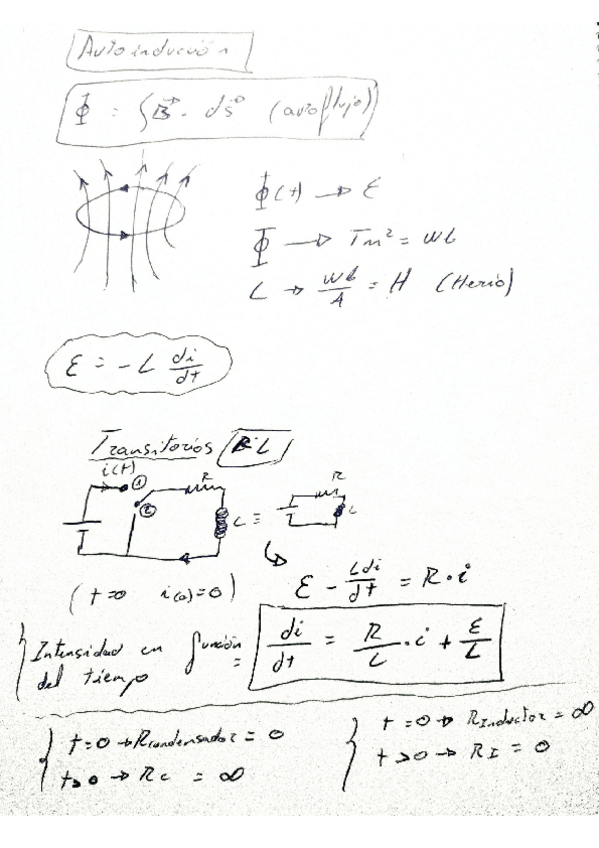 Autoinducción
Φ = ∫B⃗ · ds⃗ (autoflujo)
Φ(t) → ε
Φ → Tm² = Wb
L → Wb/A = H (Herio)
ε = -L di/dt
Transitorios RL
i(t)
① R
② L = R L
(t=0 i(0)=0)
ε - Ldi/dt = R·i
Intensidad en función del tiempo = di/dt = R/L · i + ε/L
t=0 → Rcondensador = 0
t>0 → Rc = ∞
t=0 → RInductor = ∞
t>0 → RI = 0